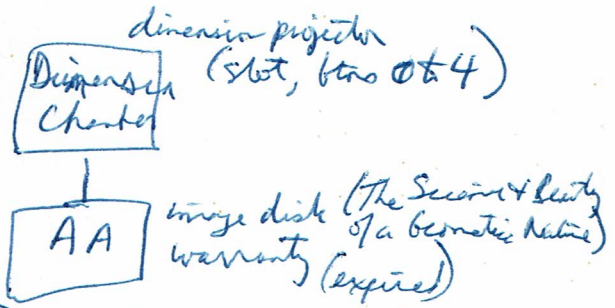 dimension projector
(slot, btns 0 to 4)
Dimension
Chamber
AA
image disk (The Science & Beauty
of a Geometric Nature)
warranty (expired)